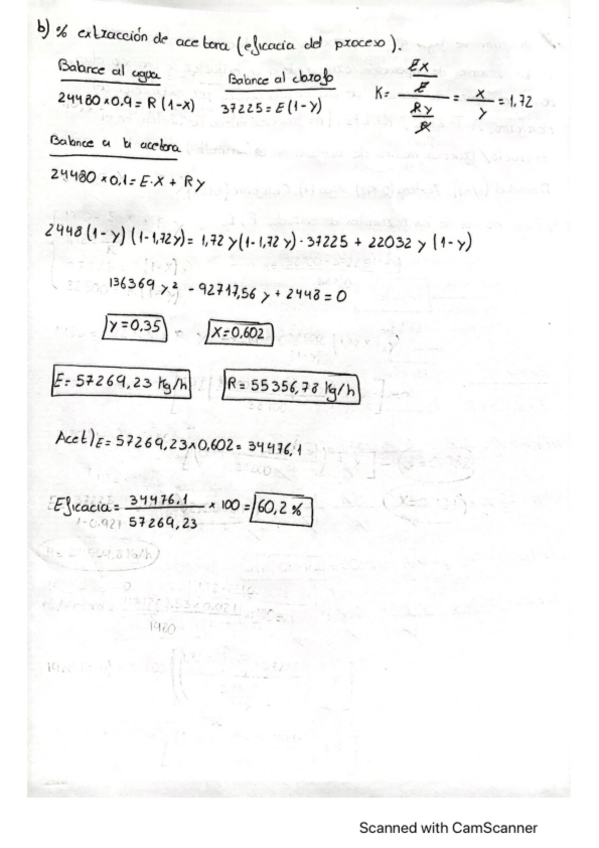 b) % extracción de acetona (eficacia del proceso).
Balance al agua
24480 x 0.9 = R (1-x)
Balance al clorofo
37225 = E (1-Y)
K = (Ex/E)/(Ry/R) = x/y = 1,72
Balance a la acetona
24480 x 0.1 = E·X + Ry
2448 (1-y) (1-1,72y) = 1,72 y (1-1,72 y) · 37225 + 22032 y (1-y)
136369 y² - 92717,56 y + 2448 = 0
y = 0,35
X = 0,602
E = 57269,23 Kg/h
R = 55356,78 kg/h
Acet)E = 57269,23 x 0,602 = 34476,1
Eficacia = 34476.1/57269,23 x 100 = 60,2 %
Scanned with CamScanner